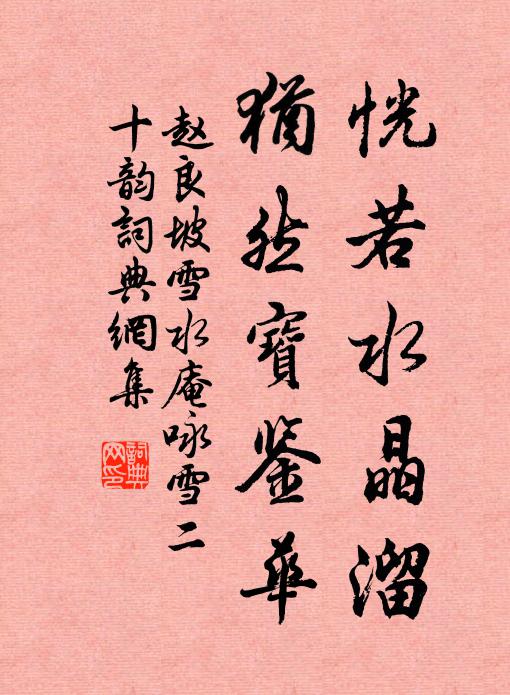 恍若水晶溜
猶然寶鉴華
赵良坡雪水庵咏雪二
十韵詞典網集
詞典網印